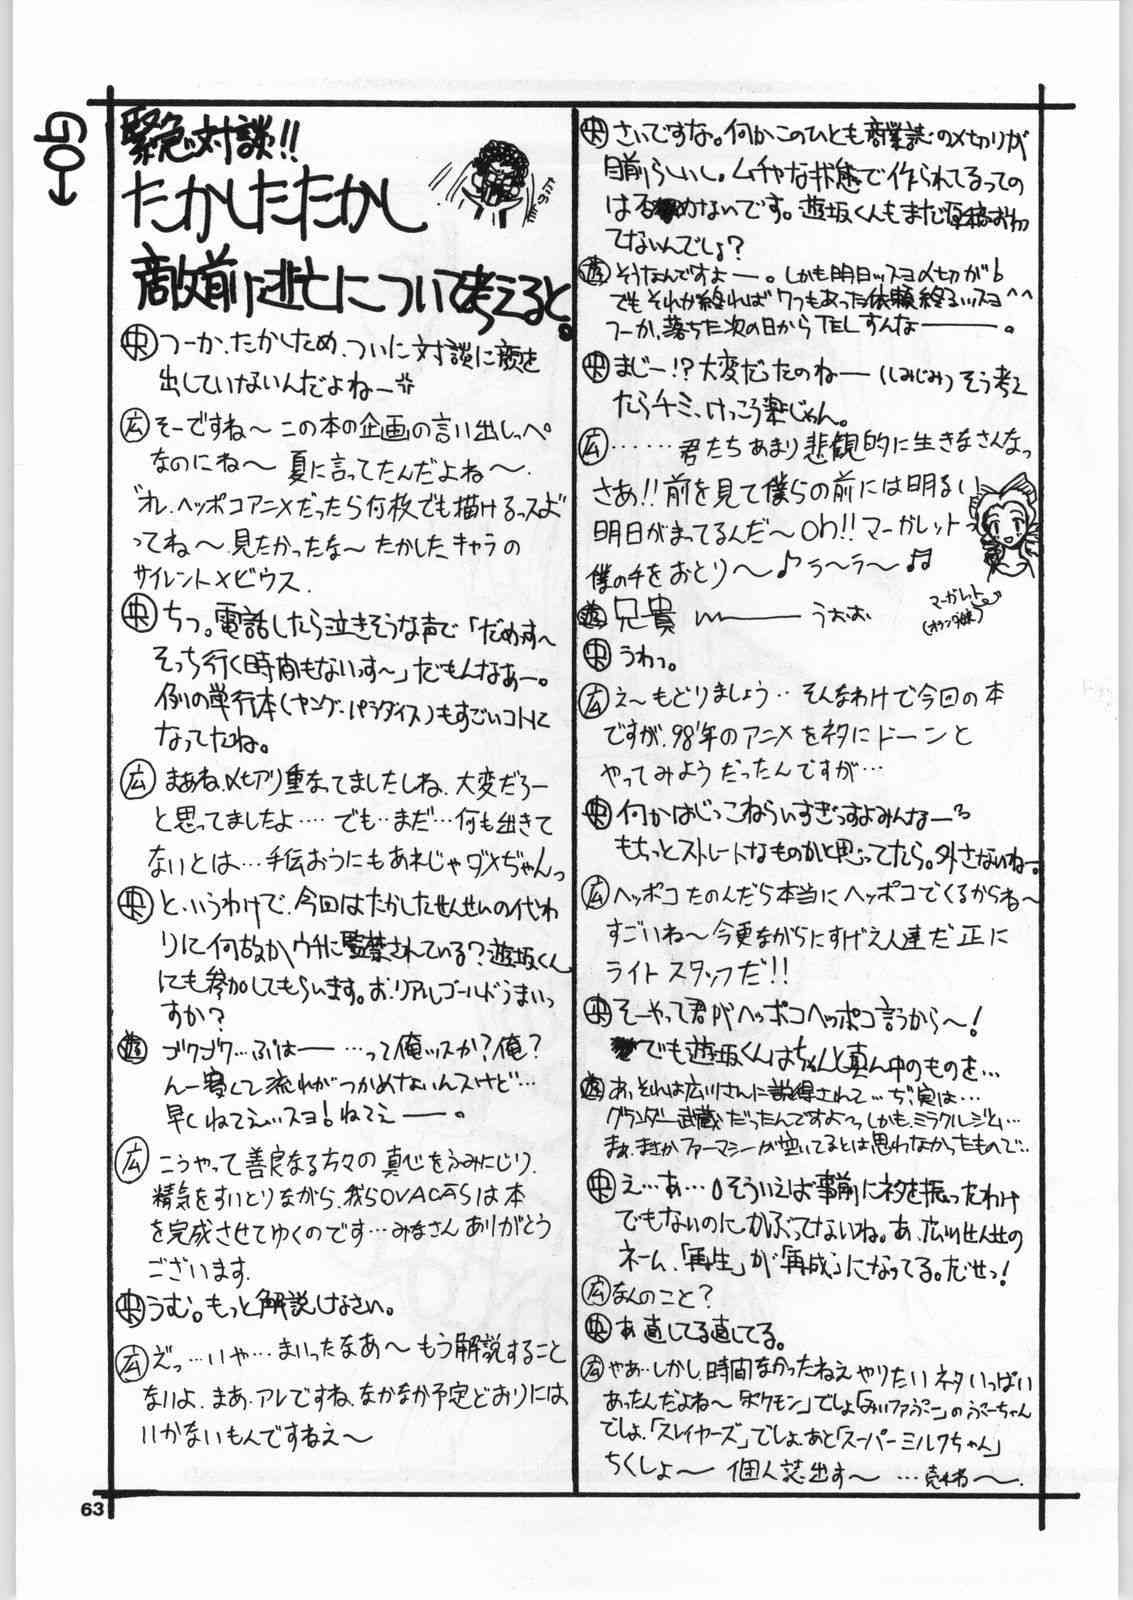 GO→
緊急対談!!
たかしたたかし
敵前逃亡について考えると。
央 つーか、たかしため、ついに対談に顔を
出していないんだよねー
広 そーですね〜この本の企画の言い出しっぺ
なのにね〜 夏に言ってたんだよね〜.
"オレ、ヘッポコアニメだったら何枚でも描けるっスよ"
ってね〜見たかったな〜たかしたキャラの
サイレントメビウス.
央 ちっ。電話したら泣きそうな声で「だめっす〜
そっち行く時間もないっす〜」だもんなぁー。
例の単行本(ヤング・パラダイス)もすごいコトに
なってたね。
広 まあね、〆切り重なってましたしね、大変だろー
と思ってましたよ‥‥でも‥まだ…何も出きて
ないとは…手伝おうにもあれじゃダメぢゃんっ
央 というわけで、今回はたかしたせんせいの代わ
りに何故かウチに監禁されている?遊坂くん
にも参加してもらいます。お、リアルゴールドうまいっ
すか?
遊 ゴクゴク…ぷはー ‥‥って俺ッスか?俺?
んー寒くて流れがつかめないんスけど…
早くねてえ…スヨ!ねてえー。
広 こうやって善良なる方々の真心をふみにじり、
精気をすいとりながら、我らOVACASは本
を完成させてゆくのです…みなさんありがとう
ございます.
央 うむ。もっと解説しなさい。
広 えっ…いや…まいったなあ〜もう解説すること
ないよ、まあ、アレですね、なかなか予定どおりには
いかないもんですねえ〜
央 さいですな。何かこのひとも商業誌の〆切りが
目前らしいし。ムチャな状態で作られてるっての
は否めないです。遊坂くんもまだ原稿おわっ
てないんでしょ?
遊 そうなんですよー。しかも明日ッスヨ〆切が
でもそれが終れば7つもあった依頼終るッスヨ^^
つーか、落ちた次の日からTELすんなー。
央 まじー!?大変だったのねー(しみじみ)そう考え
たらチミ、けっこう楽じゃん。
広 ‥‥‥君たちあまり悲観的に生きなさんなっ
さあ!!前を見て僕らの前には明るい
明日がまってるんだ〜Oh!!マーガレット
僕の手をおとり〜♪ラ〜ラ〜♫
マーガレット
(オランダ妹)
遊 兄貴ー うぉぉ
央 うわっ。
広 え〜もどりましょう‥そんなわけで今回の本
ですが、98'年のアニメをネタにドーンと
やってみようだったんですが…
央 何かはじっこねらいすぎっすよみんなー
もちっとストレートなものかと思ってたら。外さないねー。
広 ヘッポコたのんだら本当にヘッポコでくるからね〜
すごいね〜今更ながらにすげえ人達だ正に
ライトスタッフだ!!
央 そーやって君がヘッポコヘッポコ言うから〜!
でも遊坂くんはちゃんと真ん中のものを…
遊 あっそれは広川さんに説得されて…ぢ、実は…
グランダー武蔵だったんですよ〜っしかも、ミラクルジム…
まぁ、まさかファーマシーが空いてるとは思わなかったもので…
央 え…あ…そういえば事前にネタを振ったわけ
でもないのに、かぶってないね。あ、広川せんせの
ネーム、「再生」が「再成」になってる。だせっ!
広 なんのこと?
央 あ直してる直してる。
広 やぁ…しかし、時間なかったねえやりたいネタいっぱい
あったんだよね〜「ポケモン」でしょ「みぃファぷー」のぷーちゃん
でしょ、「スレイヤーズ」でしょ、あと「スーパーミルクちゃん」
ちくしょ〜 個人誌出す〜 …売れね〜.
63